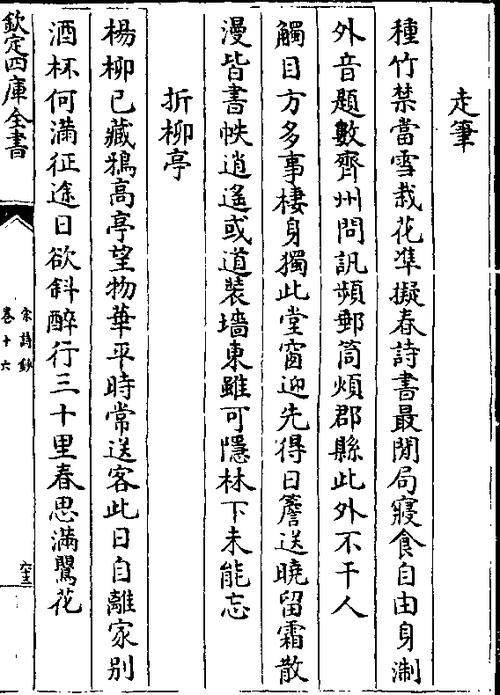 走筆
種竹禁當雪栽花準擬春詩書最閒局寢食自由身淛
外音題數齊州問訊頻郵筒煩郡縣此外不干人
觸目方多事棲身獨此堂窗迎先得日簷送曉留霜散
漫皆書帙逍遙或道裝墻東雖可隱林下未能忘
折柳亭
楊柳已藏鴉高亭望物華平時常送客此日自離家別
酒杯何滿征途日欲斜醉行三十里春思滿鸎花
欽定四庫全書
宋詩鈔
卷十六
六十三